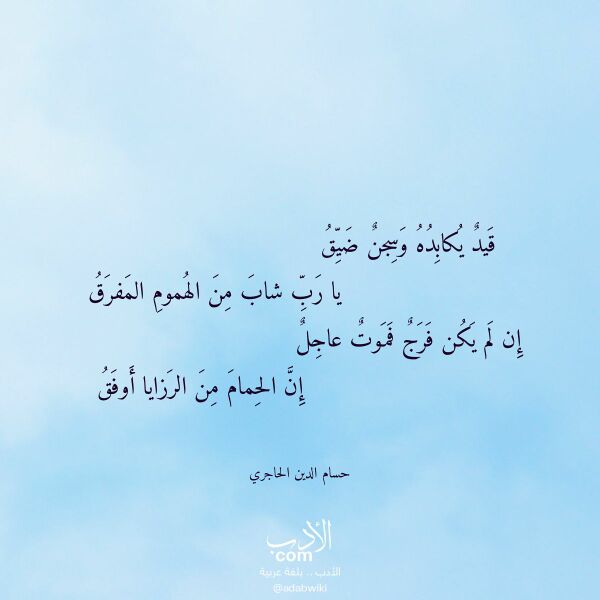 قَيدٌ يُكابِدُهُ وَسِجنٌ ضَيِّقُ
يا رَبِّ شابَ مِنَ الهُمومِ المَفرَقُ
إِن لَم يَكُن فَرَجٌ فَمَوتٌ عاجِلٌ
إِنَّ الحِمامَ مِنَ الرَزايا أَوفَقُ
حسام الدين الحاجري
الأدب
.com
الأدب .. بلغة عربية
@adabwiki